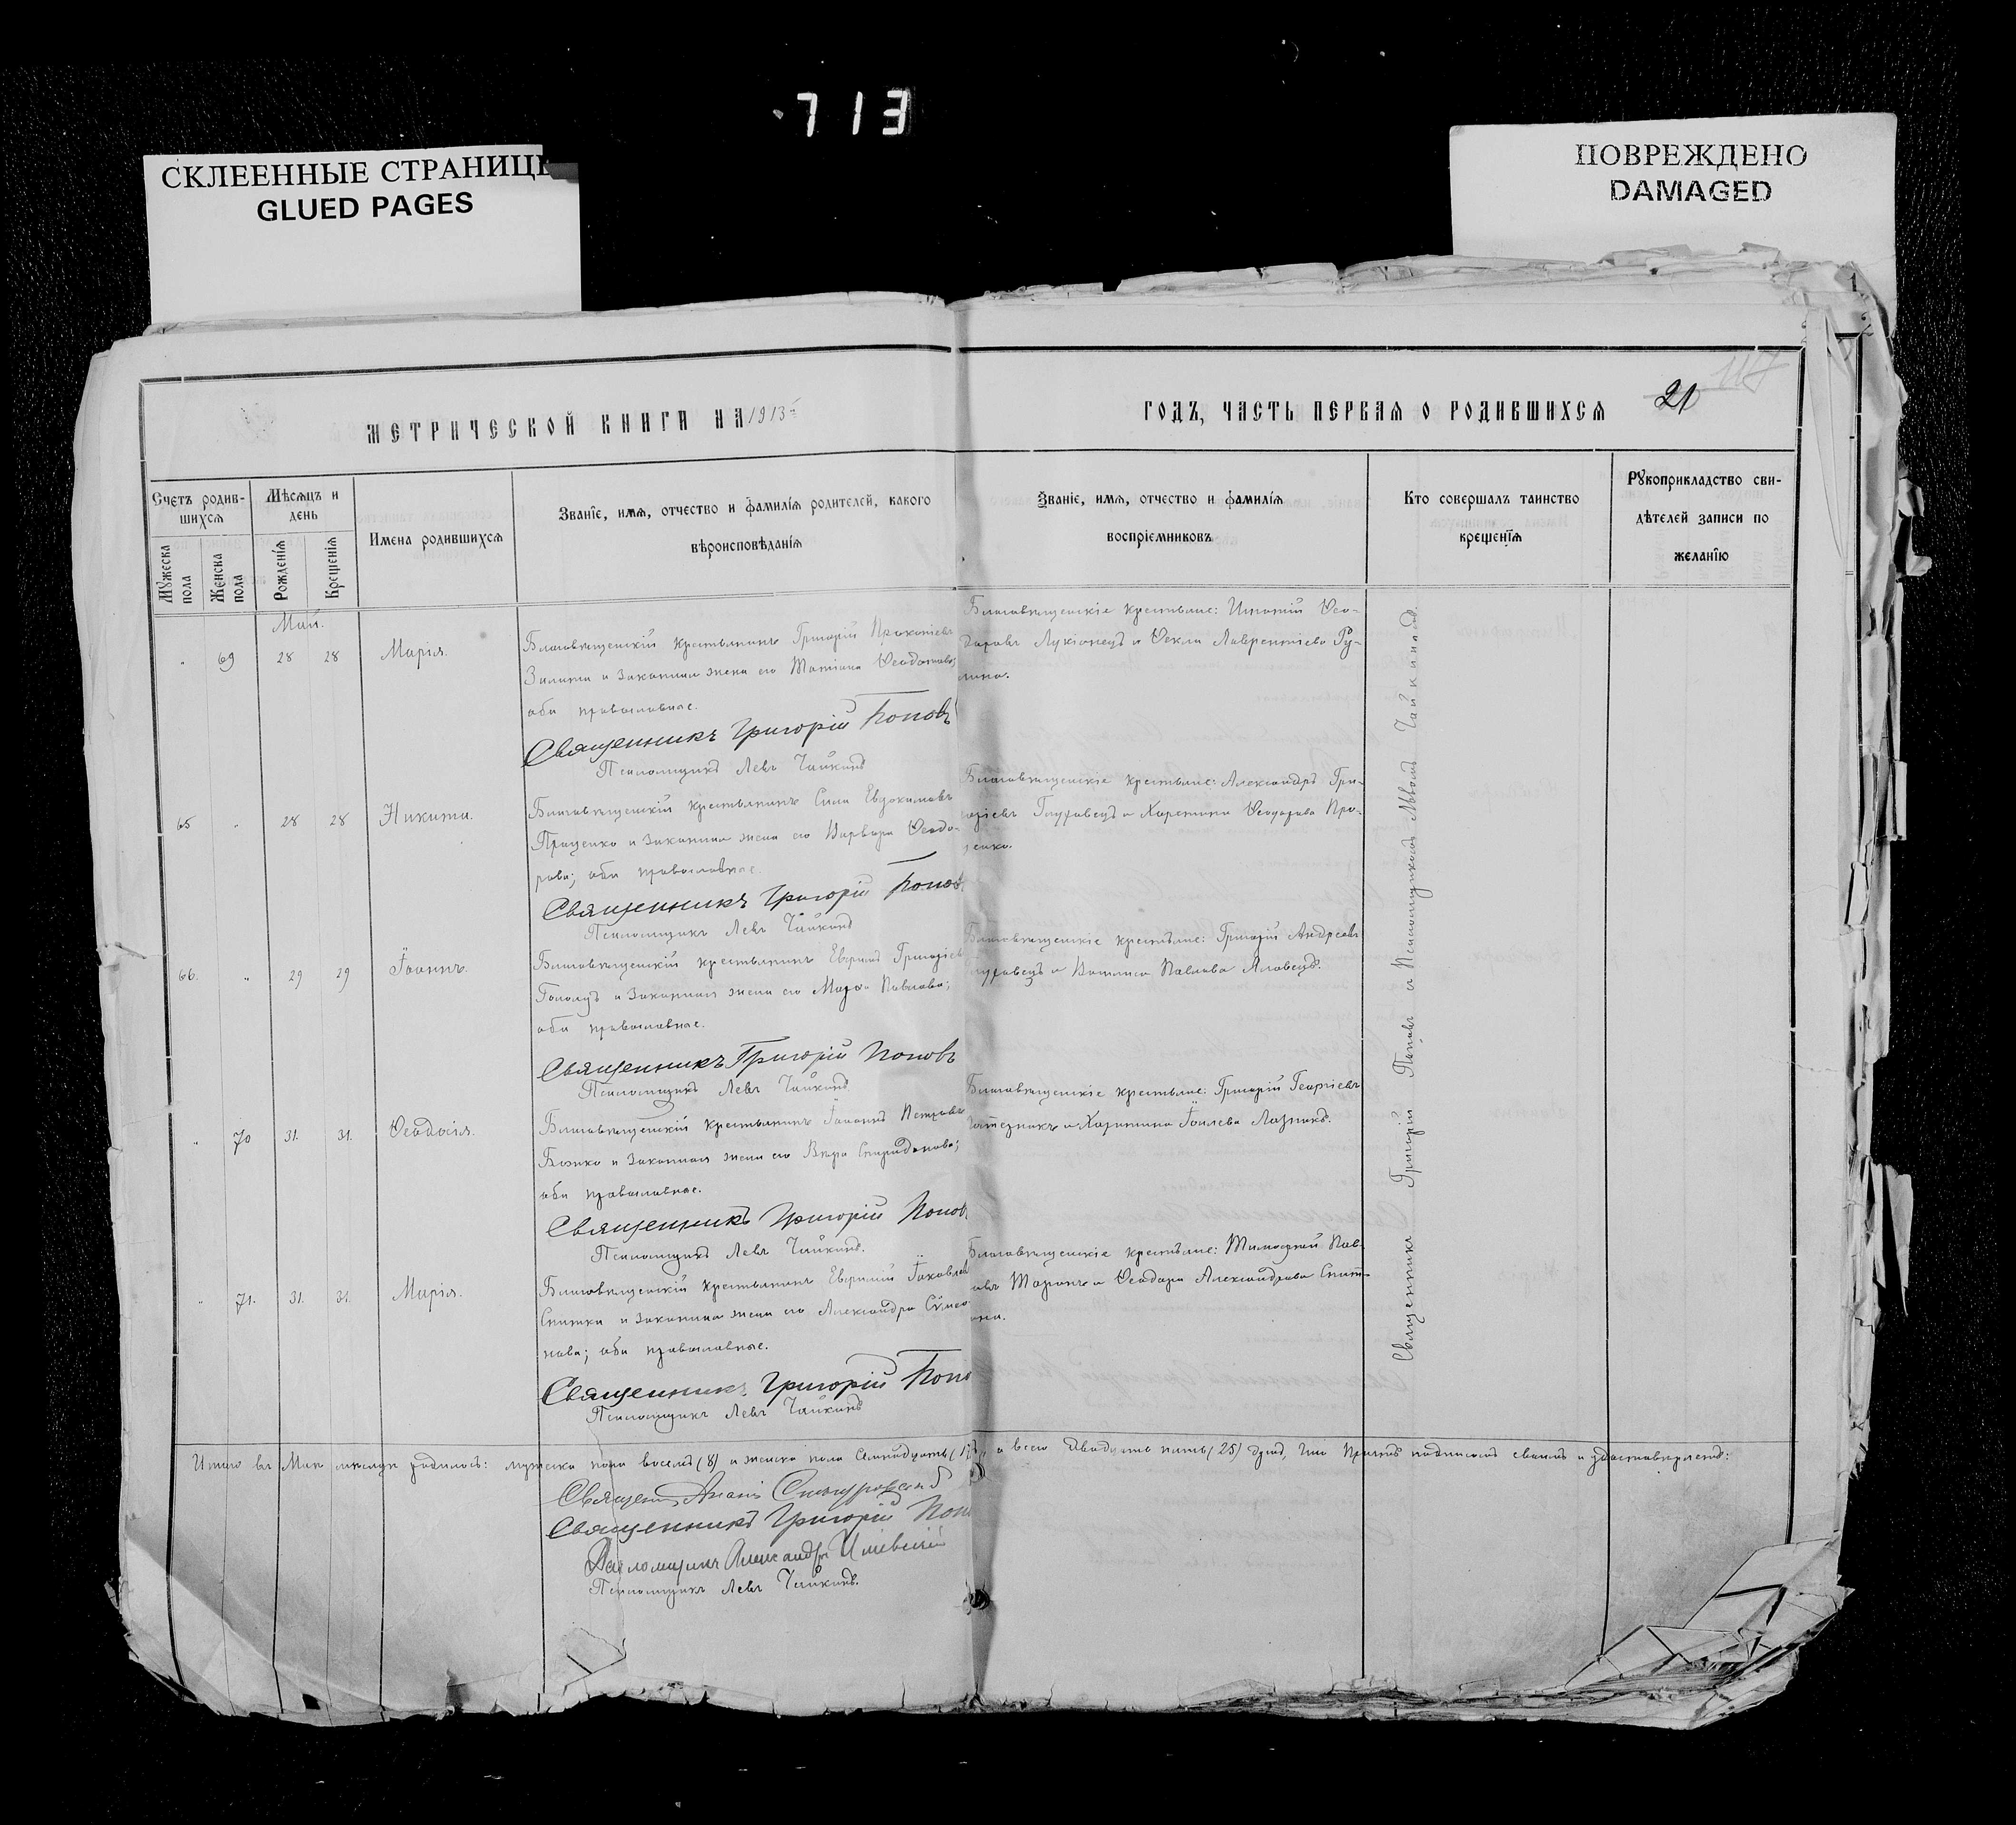 713
СКЛЕЕННЫЕ СТРАНИЦЫ
GLUED PAGES
ПОВРЕЖДЕНО
DAMAGED
МЕТРИЧЕСКОЙ КНИГИ НА 1913
ГОДЪ, ЧАСТЬ ПЕРВАЯ О РОДИВШИХСЯ
117
21
Счетъ родив-
шихся
Мѣсяцъ и
день
Мужеска
пола
Женска
пола
Рожденія
Крещенія
Имена родившихся
Званіе, имя, отчество и фамилія родителей, какого
вѣроисповѣданія
Званіе, имя, отчество и фамилія
воспріемниковъ
Кто совершалъ таинство
крещенія
Рукоприкладство сви-
дѣтелей записи по
желанію
Май.
„ 69 28 28 Марія.
Благовѣщенскій крестьянинъ Григорій Прокопіевъ
и законная жена его Татіана Ѳеодотова;
оба православные.
Священникъ Григорій Поповъ
Псаломщикъ Левъ Чайкинъ
Благовѣщенскіе крестьяне: Игнатій Ѳео-
доровъ Лукіонецъ и Ѳекла Лаврентіева
65 „ 28 28 Никита.
Благовѣщенскій крестьянинъ Сила Евдокимовъ
Проценко и законная жена его Варвара Ѳеодо-
рова; оба православные.
Священникъ Григорій Поповъ
Псаломщикъ Левъ Чайкинъ
Благовѣщенскіе крестьяне: Александръ Гри-
и Харитина Ѳеодорова Про-
ценко.
66. „ 29 29 Іоаннъ.
Благовѣщенскій крестьянинъ Евфимій Григоріевъ
и законная жена его Марфа Павлова;
оба православные.
Священникъ Григорій Поповъ
Псаломщикъ Левъ Чайкинъ
Благовѣщенскіе крестьяне: Григорій Андреевъ
и Павлова
„ 70 31. 31. Ѳеодосія.
Благовѣщенскій крестьянинъ Іоаннъ Петровъ
Божко и законная жена его Вѣра Спиридонова;
оба православные.
Священникъ Григорій Поповъ
Псаломщикъ Левъ Чайкинъ.
Благовѣщенскіе крестьяне: Григорій Георгіевъ
и Харитина Іоилева Лазникъ.
„ 71. 31. 31. Марія.
Благовѣщенскій крестьянинъ Евфимій Іаковлевъ
и законная жена его Александра Сѵмео-
нова; оба православные.
Священникъ Григорій Попо
Псаломщикъ Левъ Чайкинъ
Благовѣщенскіе крестьяне: Тимофей Пав-
ловъ Таранъ и Ѳеодора Александрова
Священникъ Григорій Поповъ и Псаломщикъ Львомъ Чайкинымъ.
Итого въ Маѣ мѣсяцѣ родилось: мужеска пола восемь (8) и женска пола семнадцать (17), а всего двадцать пять (25) душъ, что причтъ подписомъ своимъ и удостовѣряетъ:
Священникъ
Священникъ Григорій Попо
Псаломщикъ Александръ
Псаломщикъ Левъ Чайкинъ.